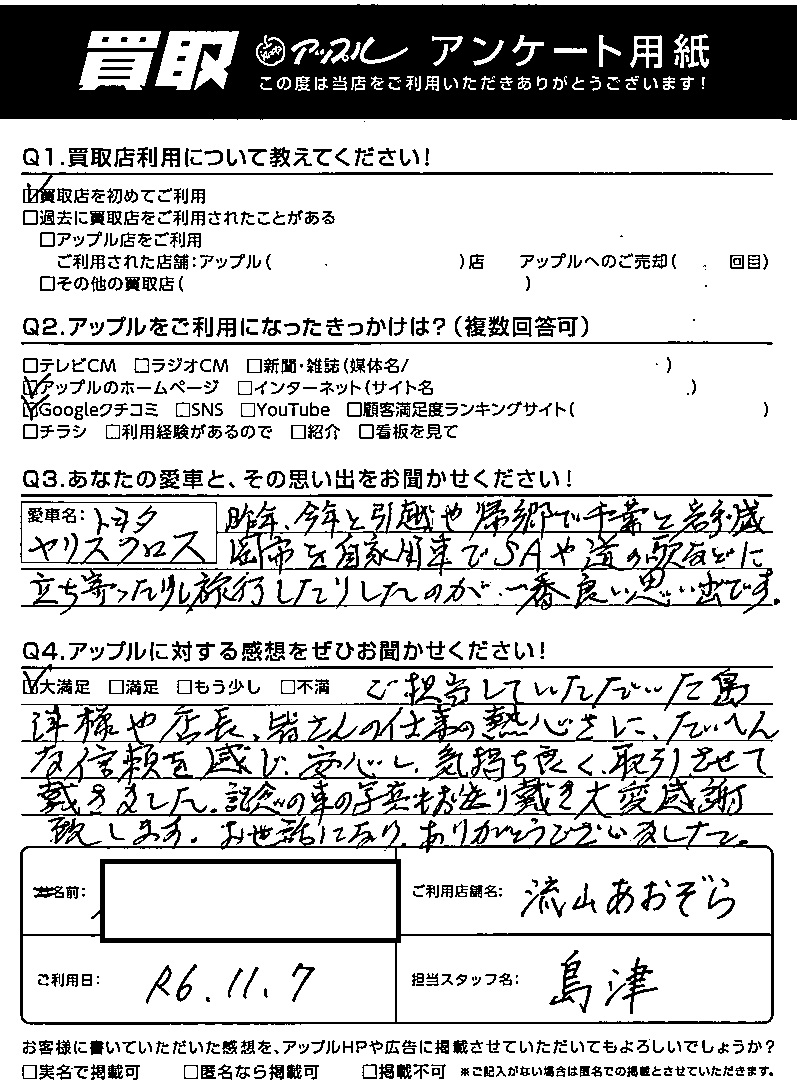 買取 アップル アンケート用紙
この度は当店をご利用いただきありがとうございます!
Q1.買取店利用について教えてください!
☑買取店を初めてご利用
□過去に買取店をご利用されたことがある
□アップル店をご利用
ご利用された店舗:アップル( )店 アップルへのご売却( 回目)
□その他の買取店( )
Q2.アップルをご利用になったきっかけは?(複数回答可)
□テレビCM □ラジオCM □新聞・雑誌(媒体名/ )
☑アップルのホームページ □インターネット(サイト名 )
☑Googleクチコミ □SNS □YouTube □顧客満足度ランキングサイト( )
□チラシ □利用経験があるので □紹介 □看板を見て
Q3.あなたの愛車と、その思い出をお聞かせください!
愛車名:トヨタ
ヤリスクロス
昨年、今年と引越や帰郷で千葉と岩手盛
岡市を自家用車でSAや道の駅などに
立ち寄ったりし旅行したりしたのが、一番良い思い出です。
Q4.アップルに対する感想をぜひお聞かせください!
☑大満足 □満足 □もう少し □不満 ご担当していただいた島
津様や店長、皆さんの仕事の熱心さに、たいへん
な信頼を感じ、安心し、気持ち良く、取引させて
戴きました。記念の車の写真もお送り戴き大変感謝
致します。お世話になり、ありがとうございましたー。
お名前:
ご利用店舗名: 流山あおぞら
ご利用日: R6.11.7
担当スタッフ名: 島津
お客様に書いていただいた感想を、アップルHPや広告に掲載させていただいてもよろしいでしょうか?
□実名で掲載可 □匿名なら掲載可 □掲載不可 ※ご記入がない場合は匿名での掲載とさせていただきます。